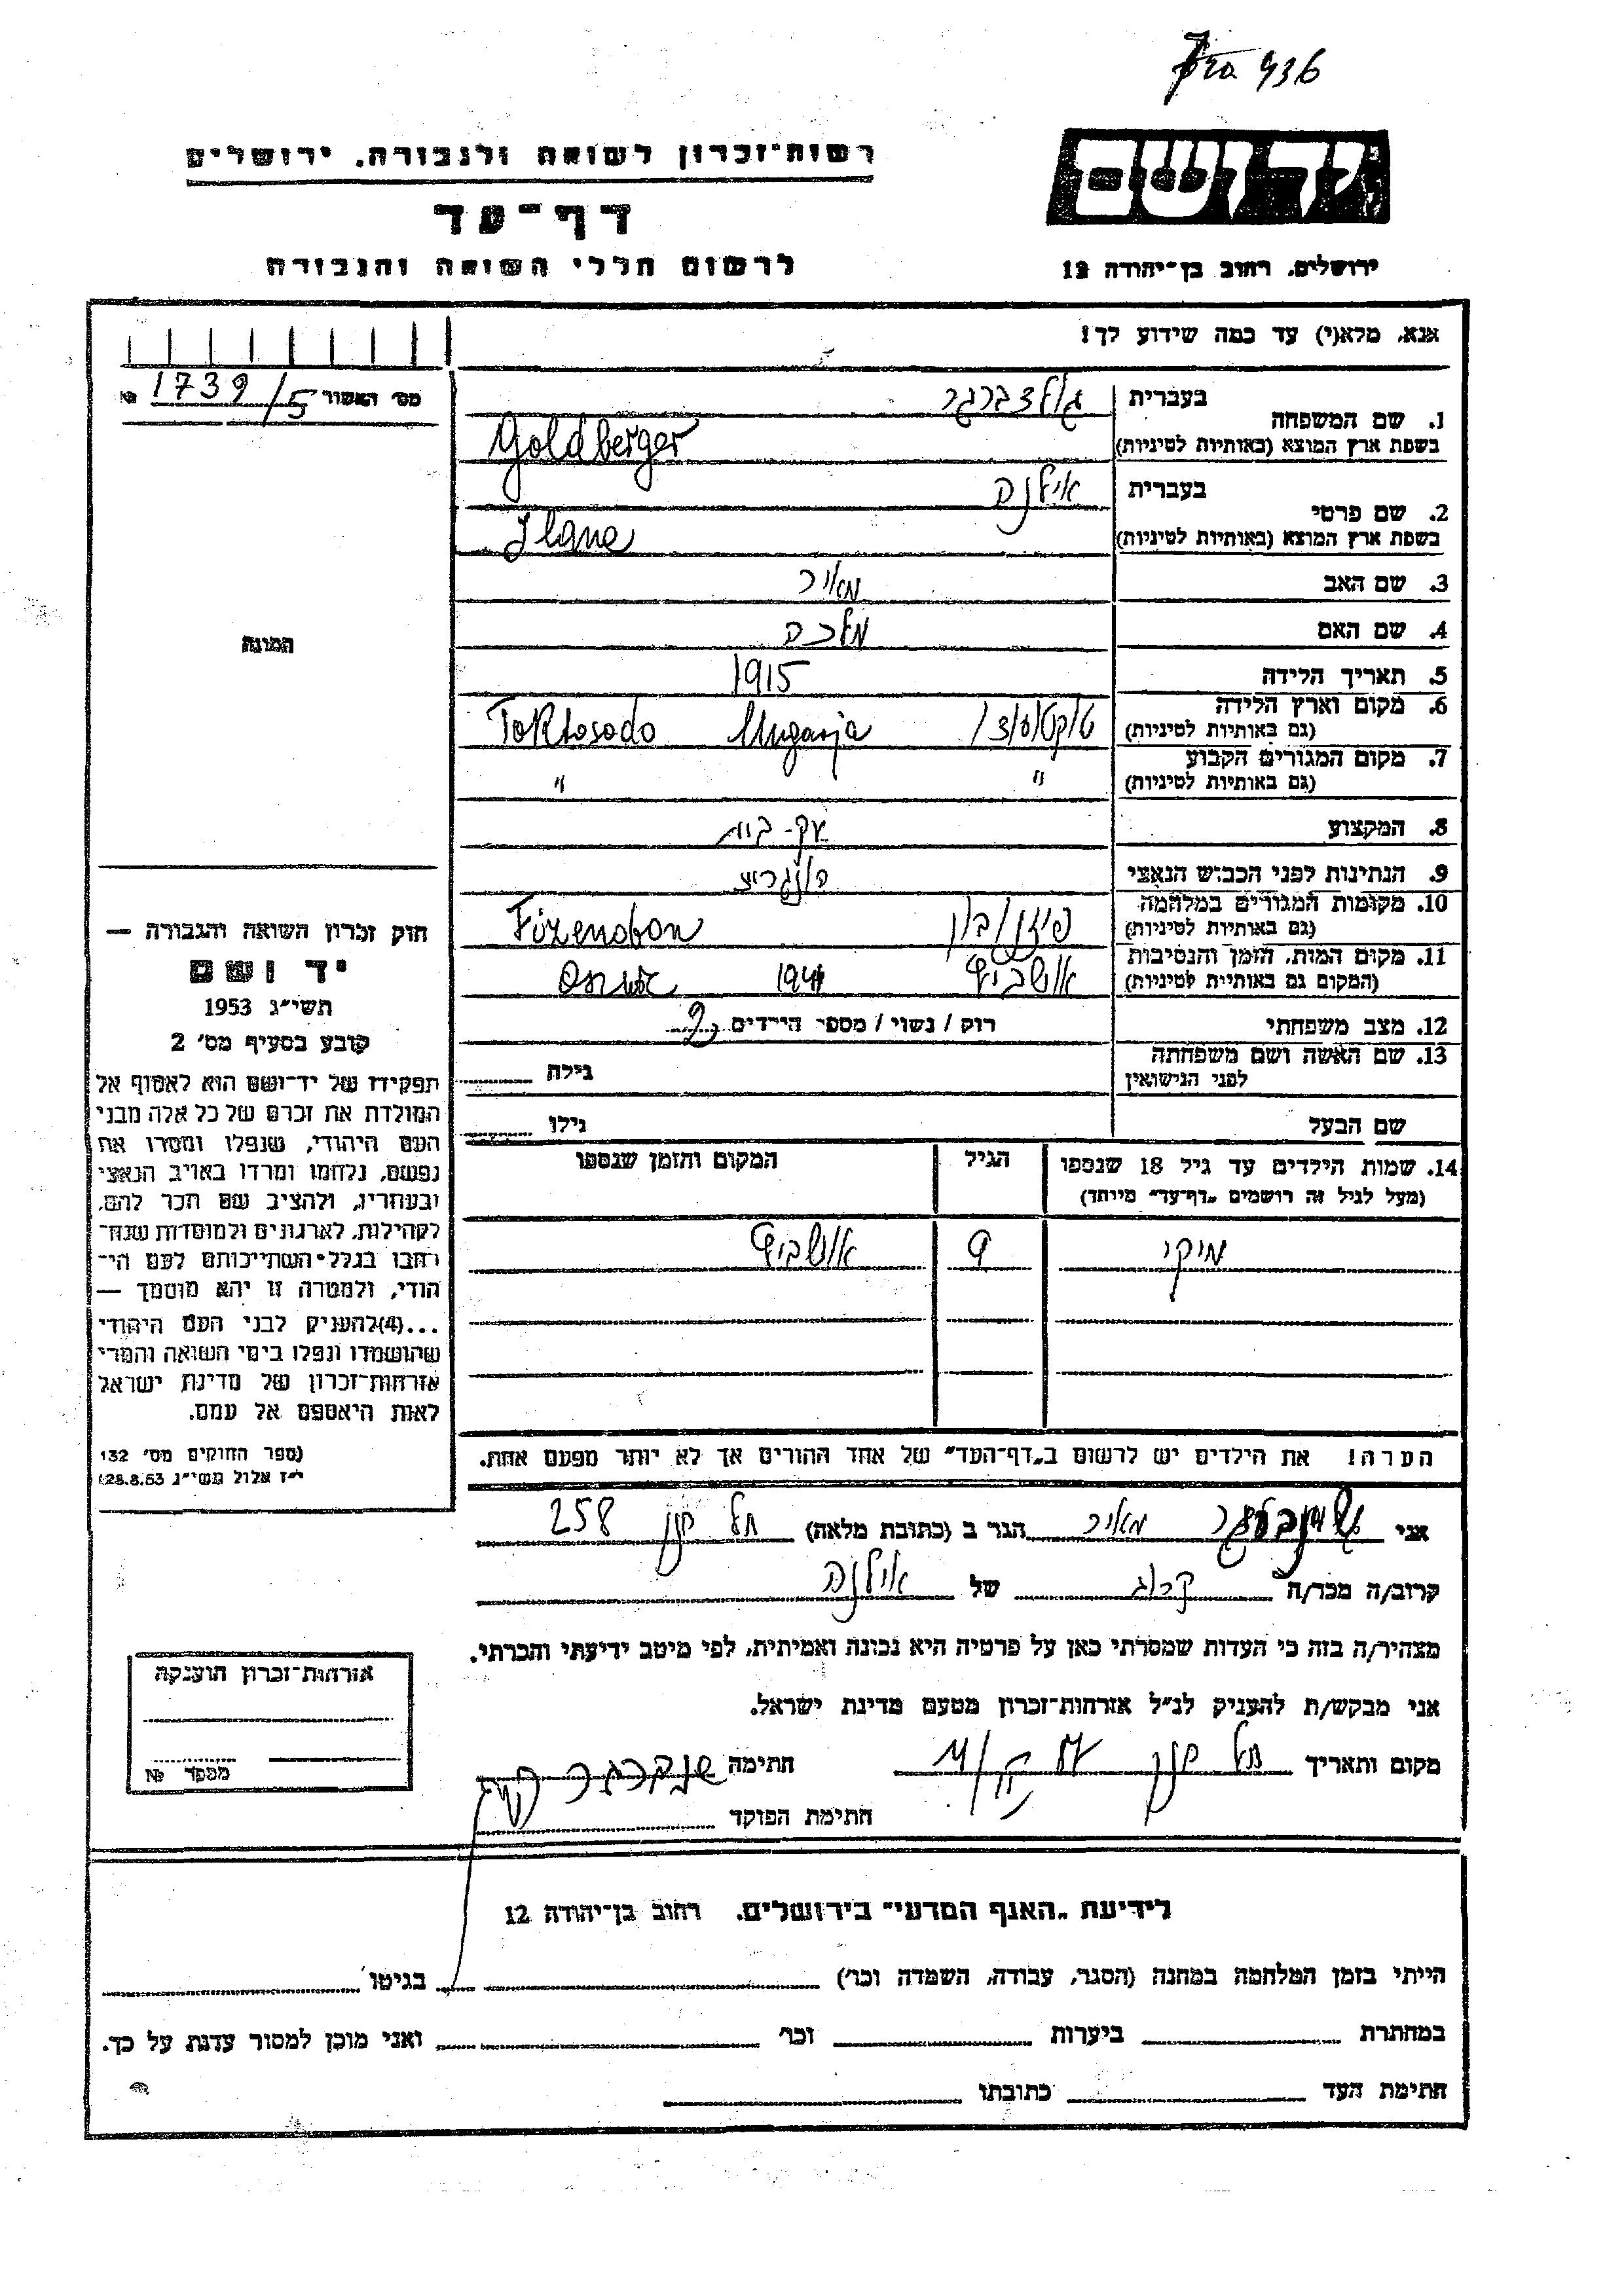 436
רשות־זכרון לשואה ולגבורה, ירושלים
יד ושם
דף־עד
לרשום חללי השואה והגבורה
ירושלים, רחוב בן־יהודה 12
אנא, מלא(י) עד כמה שידוע לך!
מס׳ האשור № 1739/5
1. שם המשפחה בעברית גולדברגר
בשפת ארץ המוצא (באותיות לטיניות) Goldberger
2. שם פרטי בעברית אילנה
בשפת ארץ המוצא (באותיות לטיניות) Ilana
3. שם האב מאיר
4. שם האם מלכה
5. תאריך הלידה 1915
6. מקום וארץ הלידה
(גם באותיות לטיניות) Toktosado Ungarja
7. מקום המגורים הקבוע
(גם באותיות לטיניות) " "
8. המקצוע עק-בית
9. הנתינות לפני הכבוש הנאצי
10. מקומות המגורים במלחמה
(גם באותיות לטיניות) Fizenobon
11. מקום המות, הזמן והנסיבות
(המקום גם באותיות לטיניות) אושביץ 1944
12. מצב משפחתי רוק / נשוי / מספר הילדים 2
13. שם האשה ושם משפחתה
לפני הנישואין גילה
שם הבעל גילו
14. שמות הילדים עד גיל 18 שנספו הגיל המקום והזמן שנספו
(מעל לגיל זה רושמים „דף־עד״ מיוחד)
מיקי 9 אושביץ
הערה! את הילדים יש לרשום ב„דף־העד״ של אחד ההורים אך לא יותר מפעם אחת.
התמונה
חוק זכרון השואה והגבורה —
יד ושם
תשי״ג 1953
קובע בסעיף מס׳ 2
תפקידו של יד־ושם הוא לאסוף אל
המולדת את זכרם של כל אלה מבני
העם היהודי, שנפלו ומסרו את
נפשם, נלחמו ומרדו באויב הנאצי
ובעוזריו, ולהציב שם וזכר להם,
לקהילות, לארגונים ולמוסדות שנח־
רבו בגלל השתייכותם לעם הי־
הודי, ולמטרה זו יהא מוסמך —
...(4)להעניק לבני העם היהודי
שהושמדו ונפלו בימי השואה והמרי
אזרחות־זכרון של מדינת ישראל
לאות היאספם אל עמם.
(ספר החוקים מס׳ 132
י״ז אלול תשי״ג 28.8.53)
אני מאיר הגר ב (כתובת מלאה) תל 258
קרוב/ה מכר/ה קרוב של אילנה
מצהיר/ה בזה כי העדות שמסרתי כאן על פרטיה היא נכונה ואמיתית, לפי מיטב ידיעתי והכרתי.
אני מבקש/ת להעניק לנ״ל אזרחות־זכרון מטעם מדינת ישראל.
מקום ותאריך תל חתימה
חתימת הפוקד
אזרחות־זכרון הוענקה
מספר №
לידיעת „האגף המדעי״ בירושלים, רחוב בן־יהודה 12
הייתי בזמן המלחמה במחנה (הסגר, עבודה, השמדה וכו׳) בגיטו
במחתרת ביערות וכו׳ ואני מוכן למסור עדות על כך.
חתימת העד כתובתו